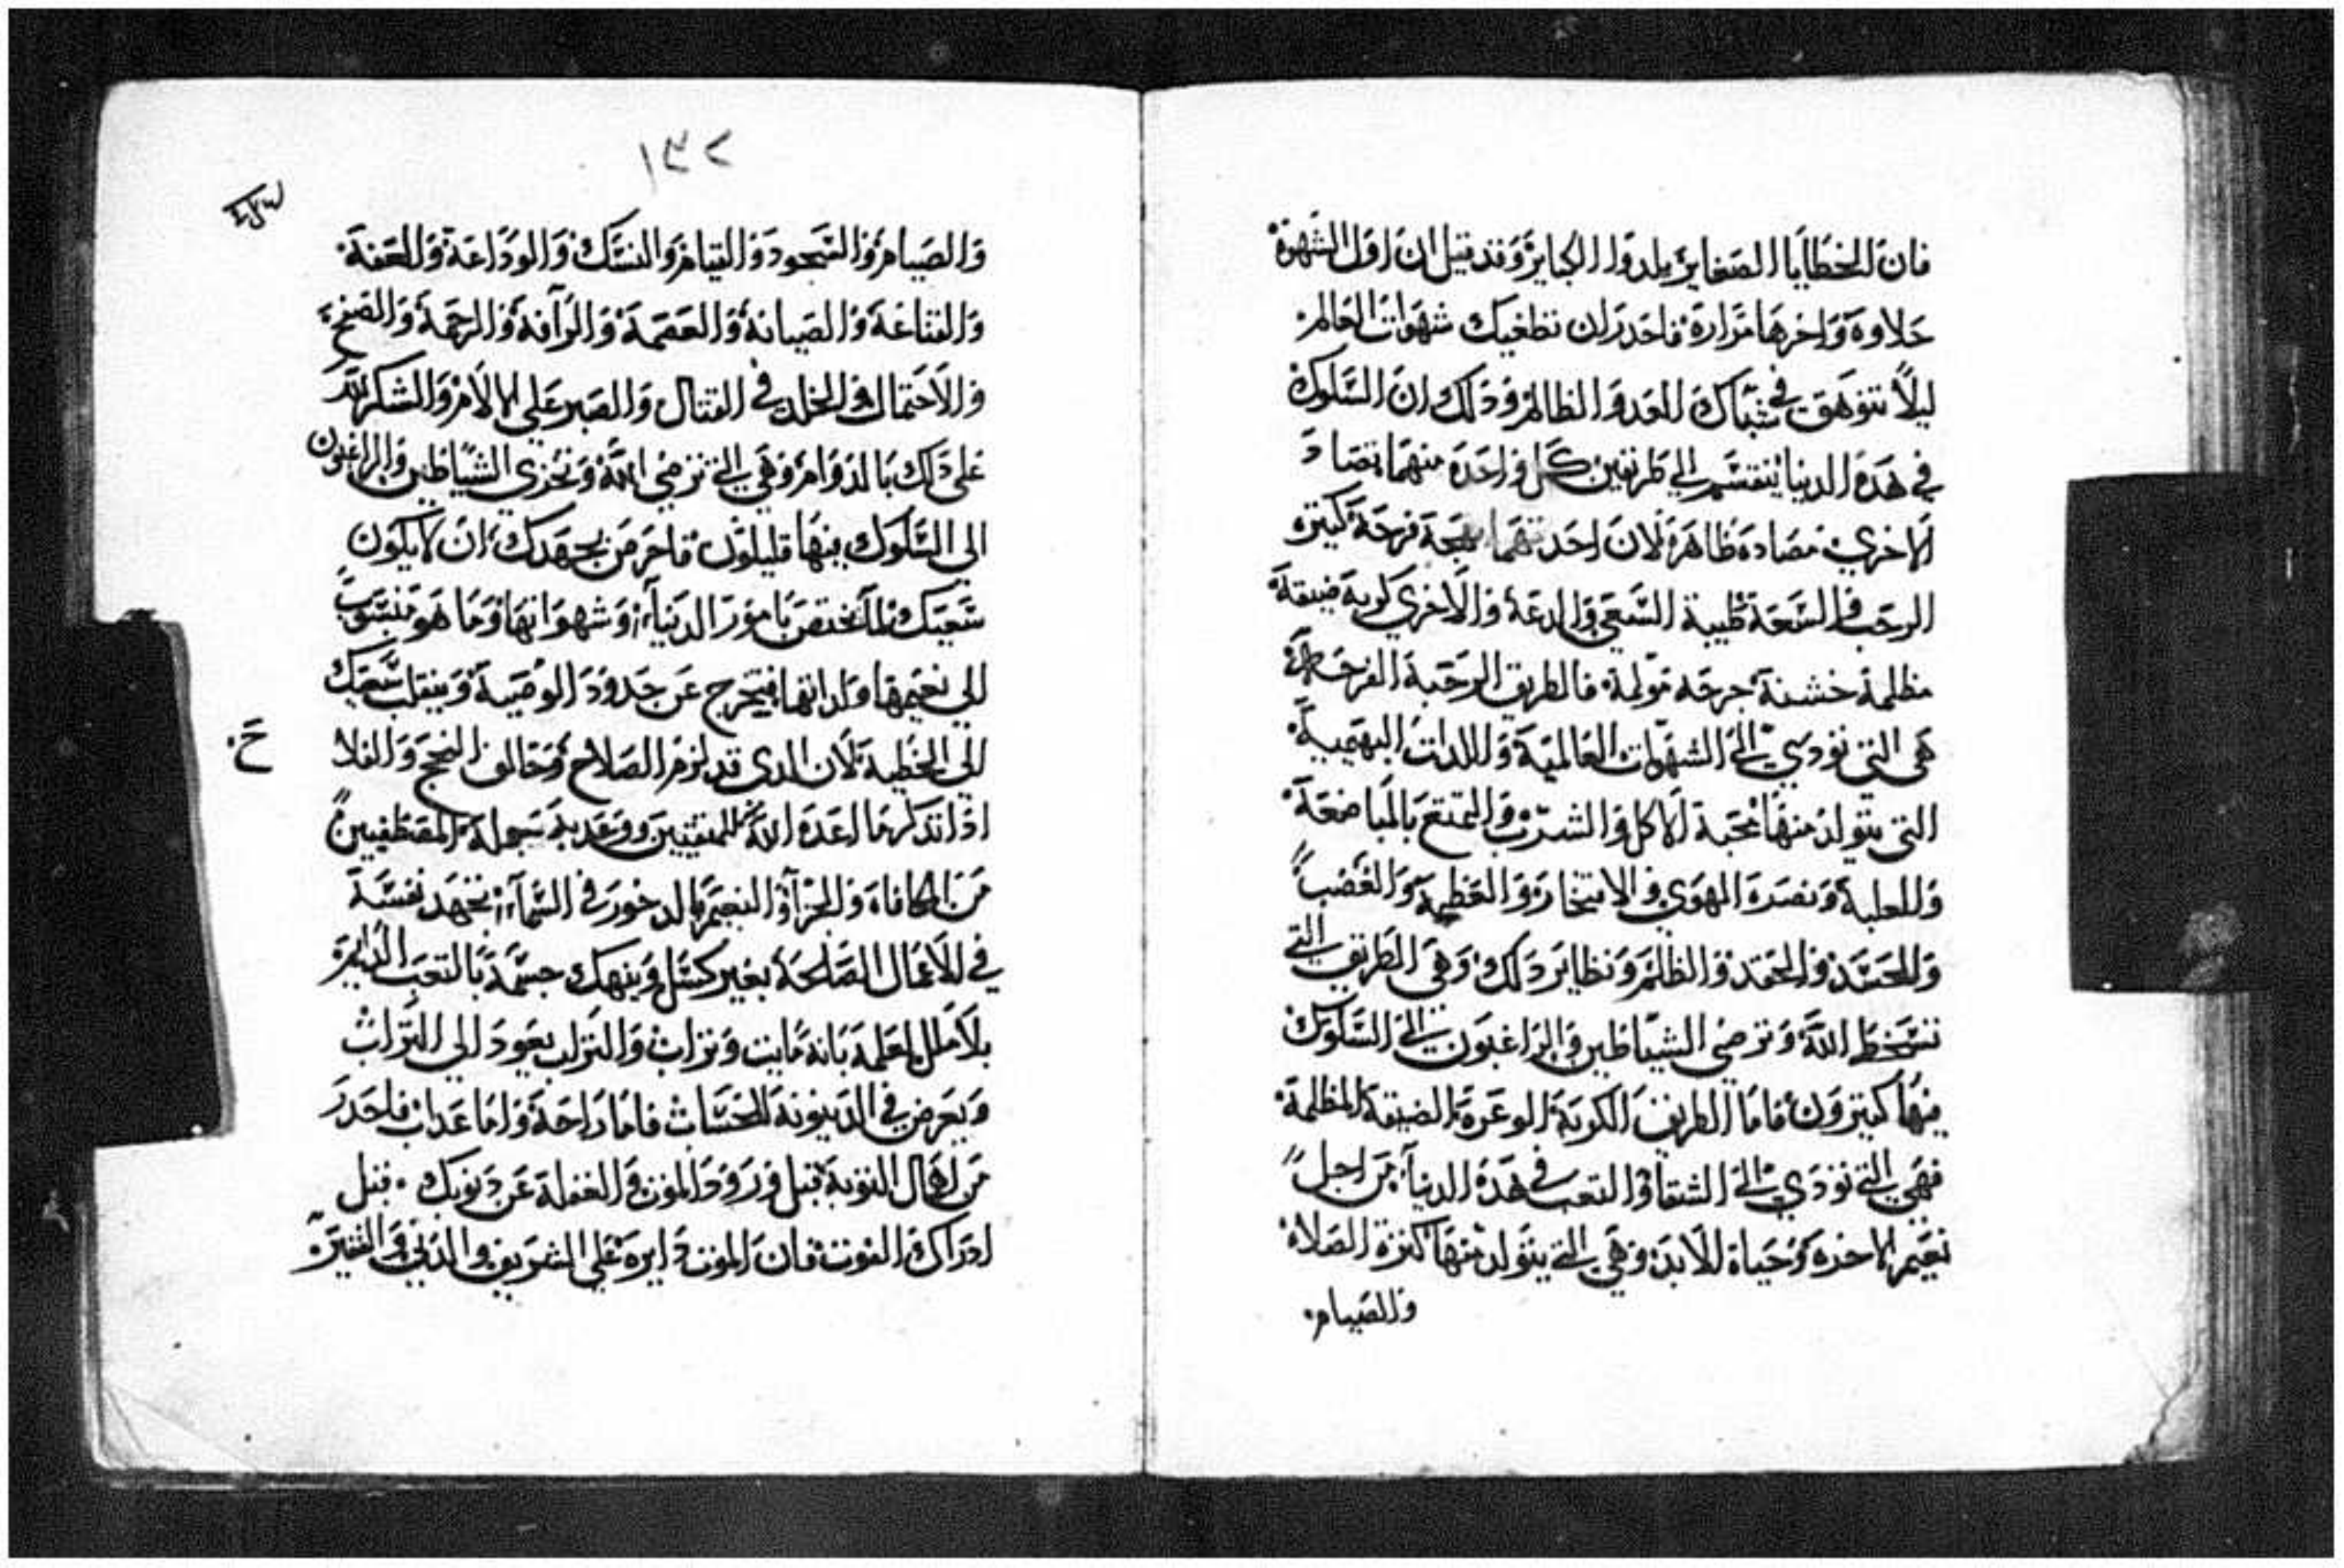 فان الخطايا الصغاير يلدوا الكباير وقد قيل ان اول الشهوة
حلاوة واخرها مرارة فاحدر ان تطغيك شهوات العالم
ليلا تتوهق في شباك العدو الظالم ودلك ان السلوك
في هده الدنيا ينقسم الي طريقين كل واحدة منهما تضاد
الاخري مضادة ظاهرة لان احدتهما بهجة فرحة كتيرة
الرحب والسعة طيبة السعي والدعة والاخري كربة ضيقة
مظلمة خشنة حرجة مولمة فالطريق الرحبة الفرحة
هي التي تودي الي الشهوات العالمية واللدات البهيمية
التي يتولد منها محبة الاكل والشرب والتمتع بالمباضعة
والغلبة ونصرة الهوي والافتخار والعظمة والغضب
والحسد والحقد والظلم ونظاير دلك وهي الطريق التي
تسخط الله وترضي الشياطين والراغبون الي السلوك
فيها كتيرون فاما الطريق الكربة الوعرة الضيقة المظلمة
فهي التي تودي الي الشقا والتعب في هده الدنيا من اجل
نعيم الاخرة وحياة الابد وهي التي يتولد منها كترة الصلاة
والصيام
١٣٢
والصيام والسجود والقيام والنسك والوداعة والعفة
والقناعة والصيانة والعصمة والرآفة والرحمة والصفح
والاحتمال والجلد في القتال والصبر علي الالام والشكر لله
علي دلك بالدوام وهي التي ترضي الله وتخزي الشياطين والراغبون
الي السلوك فيها قليلون فاحرص بجهدك ان لا يكون
سعيك لما يختص بامور الدنيا وشهواتها وما هو منسوب
الي نعيمها ولداتها فتخرج عن حدود الوصية وينقلب سعيك
الي الخطية لان الدي قد لزم الصلاح وحالف النجح والفلاح
ادا تدكر ما اعده الله للمتقيين ووعد به سجوله المصطفيين
من المكافاة والجزآ والنعيم المدخور في السمآ يجهد نفسه
في الاعمال الصالحة بغير كسل وينهك جسمه بالتعب الدايم
بلا ملل لعلمه بانه مايت وتراب والتراب يعود الي التراب
ويعرض في الدينونة للحساب فاما راحة واما عداب فاحدر
من اهمال التوبة قبل ورود الموت والغفلة عن دنوبك قبل
ادراك الفوت فان الموت دايره علي الشريف والدني والفقير